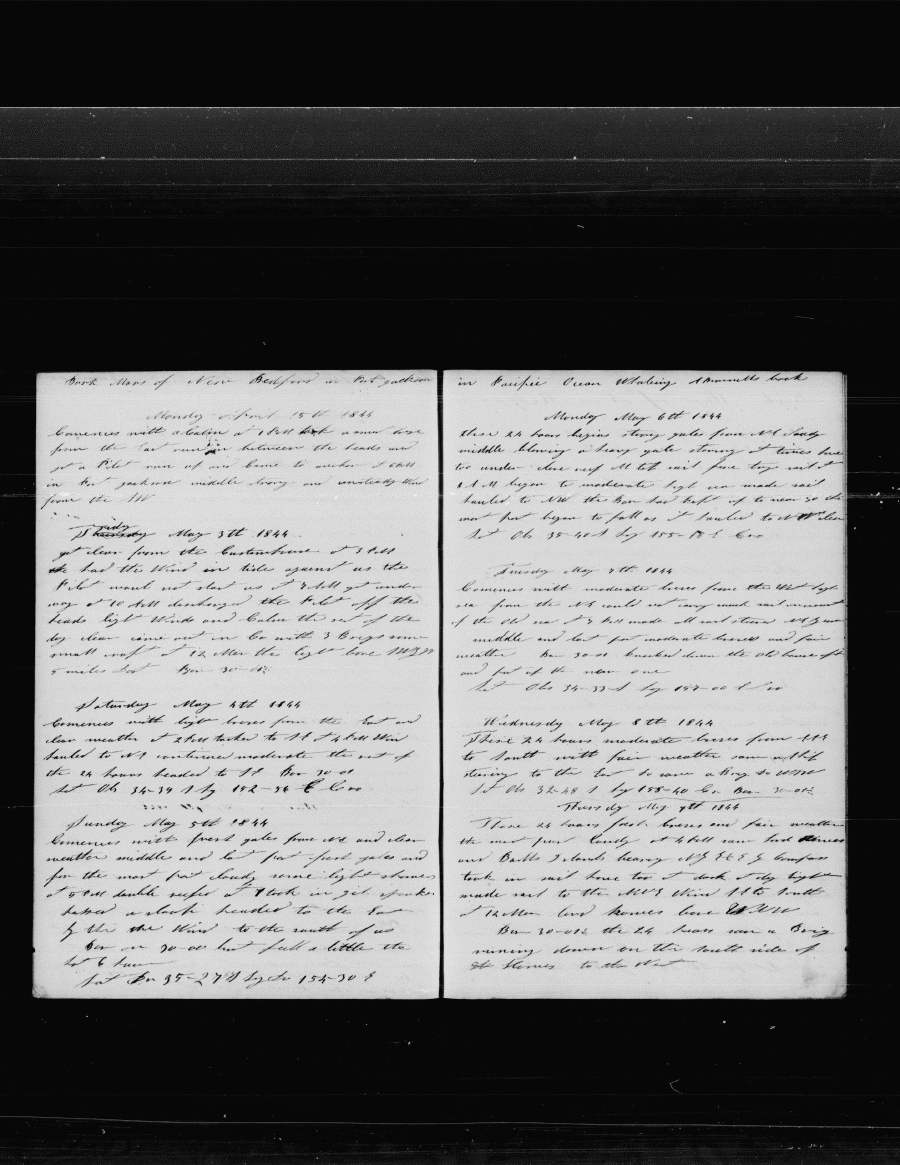 Bark Mars of New Bedford in Port Jackson
Monday April 15th 1844
Comences with a Calm at 1 PM a small breze
from the East run in between the heads and
got a Pilot run up and Came to anchor 5 PM
in Port Jackson middle and unsteady Wind
from the SW
Friday May 3th 1844
got clear from the Customhouse at 3 PM
had the Wind in tide against us the
Pilot would not start us at 7 AM got under
way at 10 AM discharged the Pilot off the
heads light Winds and Calm the rest of the
day clear came out in Co with 3 Brigs some
small craft at 12 Mer the light bore
5 miles dist Bar 30-01
Saturday May 4th 1844
Comences with light breses from the East and
clear weather at 2 PM tacked to 4 PM Wind
hauled to NE continued moderate the rest of
the 24 hours headed to Bar 30-01
Lat Obs 34-39 S by 152-54 E Cro
Sunday May 5th 1844
Comences with fresh gales from NE and clear
weather middle and last part fresh gales and
for the most part cloudy some light showers
at 5 PM double reefed took in gib spanker
passed a sloop headed to the East
by the Wind to the south of us
Bar on 30-00 but fell a little the
last 6 hours
Lat 35-27 S by 154-30 E
in Pacific Ocean Whaling book
Monday May 6th 1844
These 24 hours begins strong gales from NE Cloudy
middle blowing a heavy gale stormy at times hove
too under close reef M top sail fore try sail at
8 AM began to moderate high sea made sail
hauled to NW the Bar had kept up to near 30 the
most part began to fall as it hauled to NW clear
Lat Obs 35-40 S by 155- E Cro
Tuesday May 7th 1844
Comences with moderate breses from the West high
sea from the NE could not carry much sail on account
of the Old sea at 3 PM made all sail
middle and last part moderate breses and fair
weather Bar 30-00 knocked down the Old house aft
and put up the new one
Lat Obs 34-33 S by 157-00 E Cro
Wednesday May 8th 1844
These 24 hours moderate breses from
to South with fair weather saw a ship
steering to the East to saw a Brig to WSW
Lat Obs 32-48 S by 158-40 Cro Bar 30-01
Thursday May 9th 1844
These 24 hours fresh breses and fair weather
the most part Cloudy at 4 PM saw lord Howes
and Balls Islands bearing by Compass
took in sail hove too at dark at day light
made sail to the Wind to South
at 12 Mer lord howes bore WNW
Bar 30-01 the 24 hours saw a Brig
running down on the South side of
Howes to the West